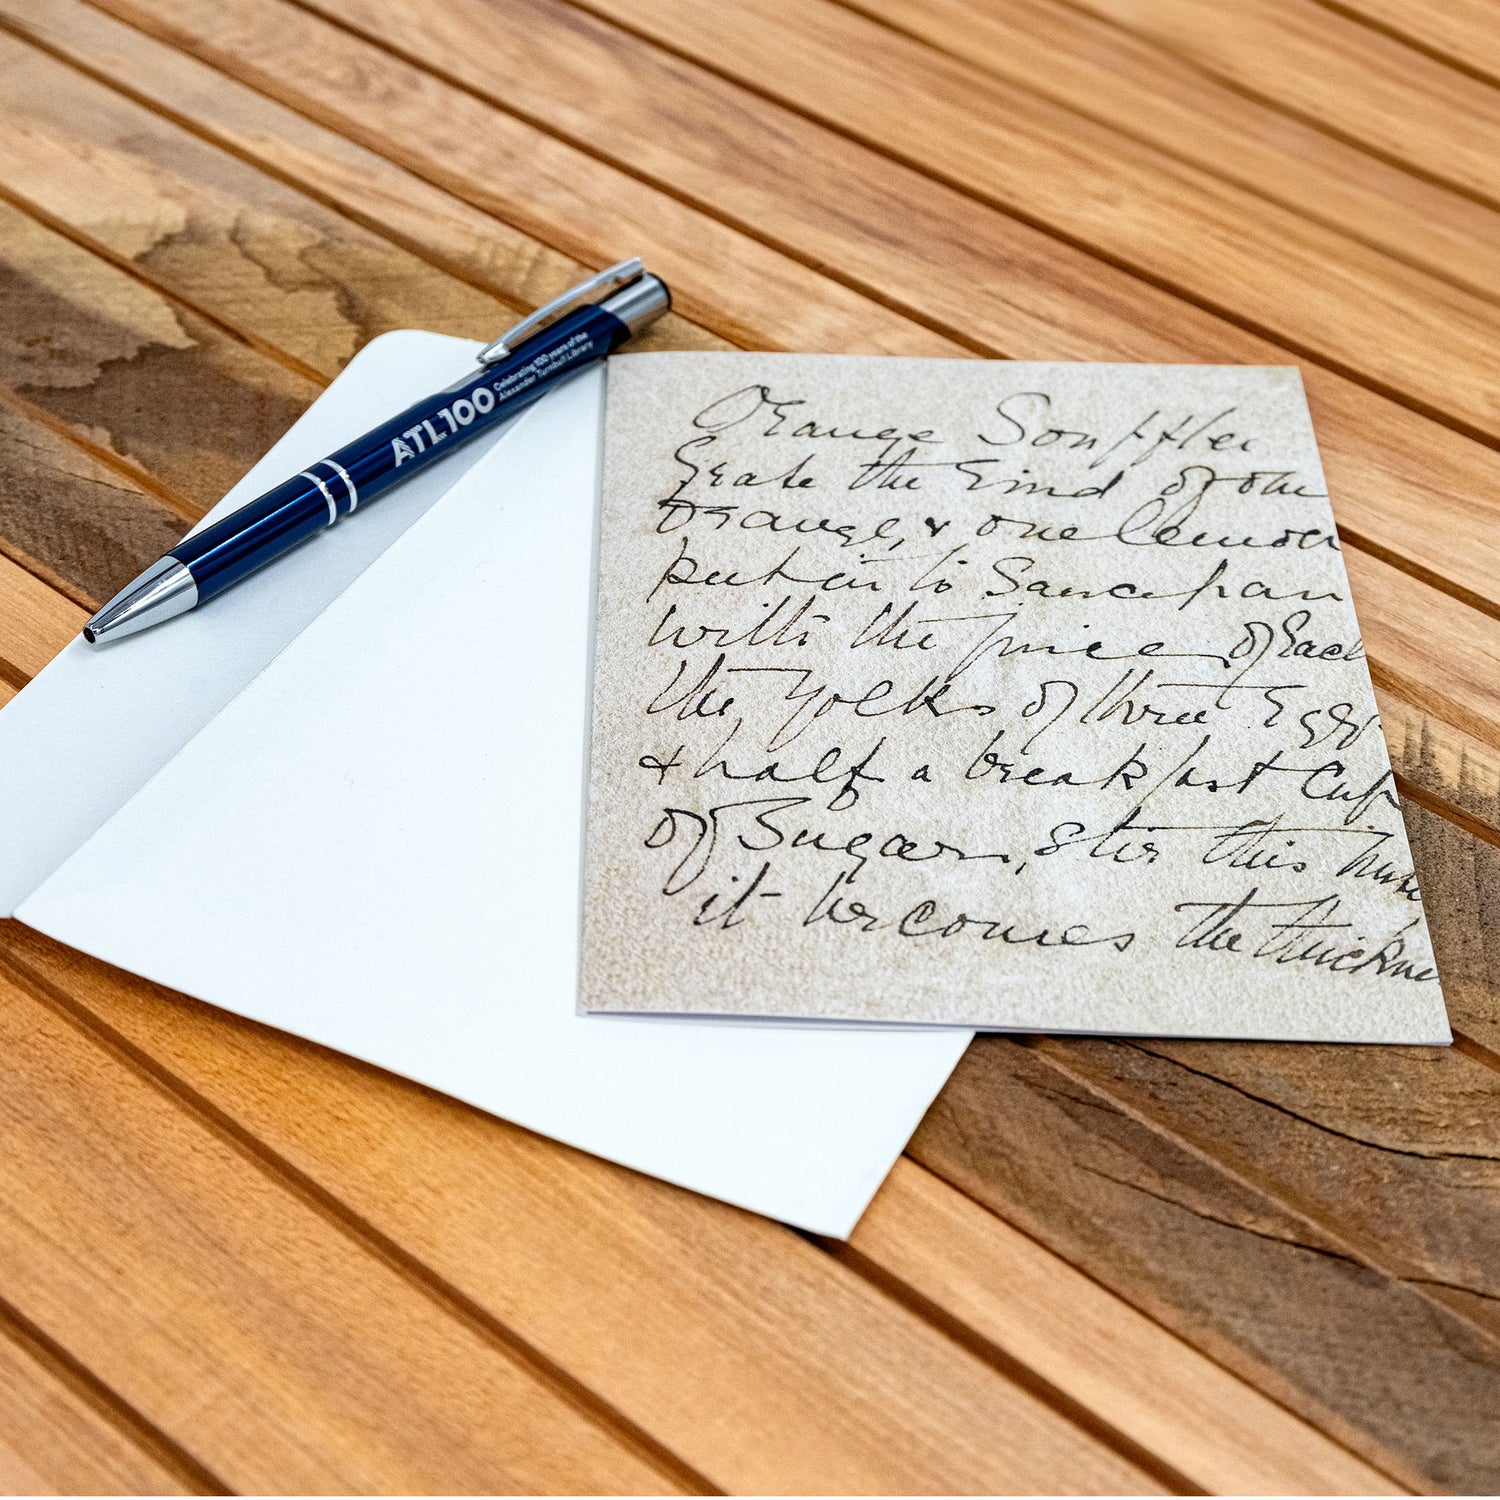 ATL100
Celebrating 100 years of the
Alexander Turnbull Library
Orange Souffler
Grate the rind of one
orange, & one lemon
put in to Saucepan
with the juice of Each
the yolks of three Eggs
& half a breakfast Cup
of Sugar, stir this
it becomes the thickne